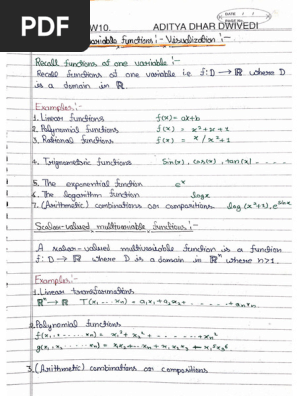 PDF
DATE
W10. ADITYA DHAR DWIVEDI
variable functions :- Visualization :-
Recall functions of one variable :-
Recall functions of one variable i.e. f: D → R where D
is a domain in R.
Examples :-
1. Linear functions f(x) = ax+b
2. Polynomial functions f(x) = x³+x+1
3. Rational functions f(x) = x/x³+1
4. Trigonometric functions Sin(x), cos(x), tan(x) - - - - -
5. The exponential function eˣ
6. The logarithm function logx
7. (Arithmetic) combinations or compositions log(x²+1), e^sinx
Scalar-valued, multivariable, functions :-
A scalar-valued multivariable function is a function
f: D → R where D is a domain in Rⁿ where n>1.
Examples :-
1. Linear transformations
Rⁿ → R T(x₁ ... xₙ) = a₁x₁+a₂x₂+ - - - - - - +aₙxₙ
2. Polynomial functions
f(x₁, ...... xₙ) = x₁²+x₂²+ ........ +xₙ²
3. (Arithmetic) combinations or compositions